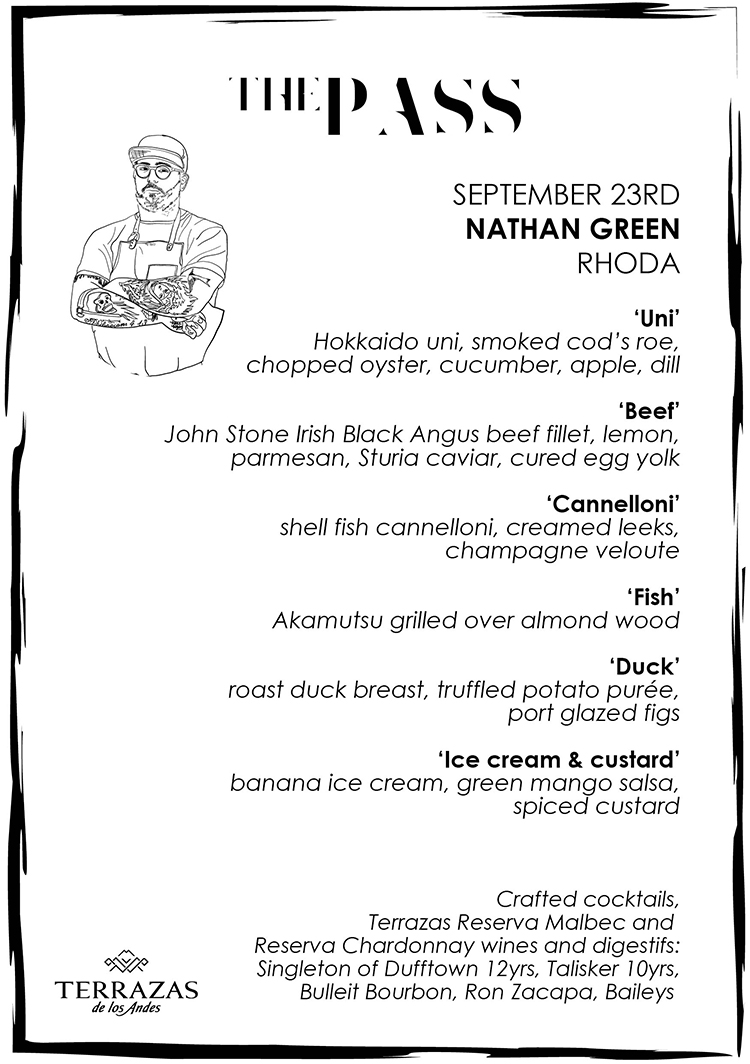 THE PASS
SEPTEMBER 23RD
NATHAN GREEN
RHODA
‘Uni’
Hokkaido uni, smoked cod’s roe,
chopped oyster, cucumber, apple, dill
‘Beef’
John Stone Irish Black Angus beef fillet, lemon,
parmesan, Sturia caviar, cured egg yolk
‘Cannelloni’
shell fish cannelloni, creamed leeks,
champagne veloute
‘Fish’
Akamutsu grilled over almond wood
‘Duck’
roast duck breast, truffled potato purée,
port glazed figs
‘Ice cream & custard’
banana ice cream, green mango salsa,
spiced custard
Crafted cocktails,
Terrazas Reserva Malbec and
Reserva Chardonnay wines and digestifs:
Singleton of Dufftown 12yrs, Talisker 10yrs,
Bulleit Bourbon, Ron Zacapa, Baileys
TERRAZAS
de los Andes